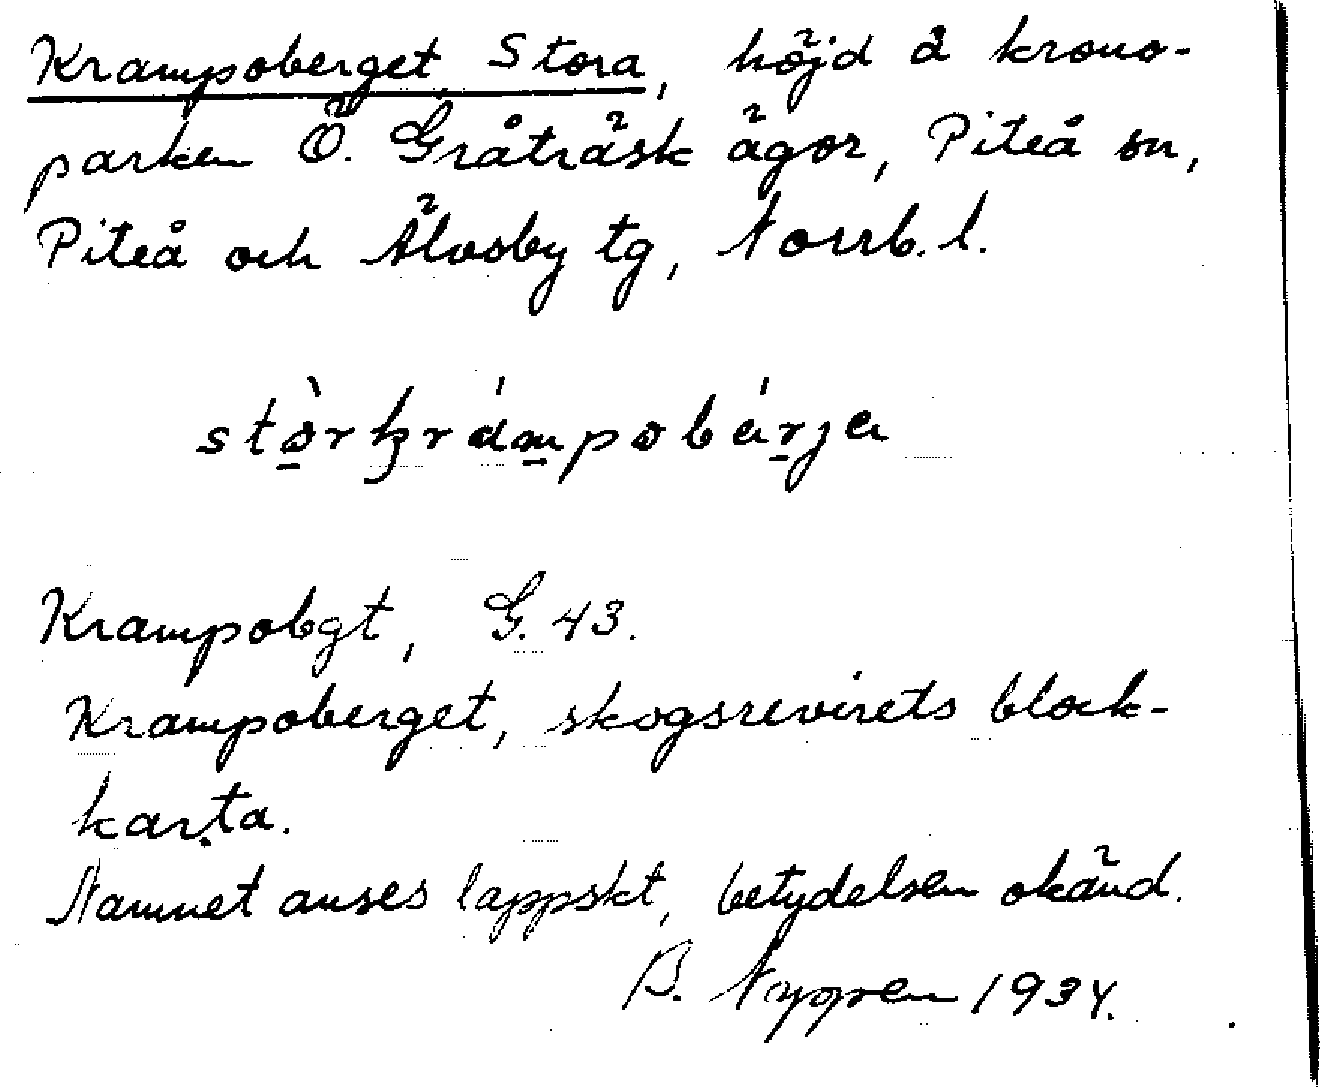 Krampoberget, Stora, höjd å krono-
parken Ö. Gråträsk ägor, Piteå sn,
Piteå och Älvsby tg, Norrb. l.
Krampobgt, G. 43.
Krampoberget, skogsrevirets block-
karta.
Namnet anses lappskt, betydelsen okänd.
B. Nygren 1934.